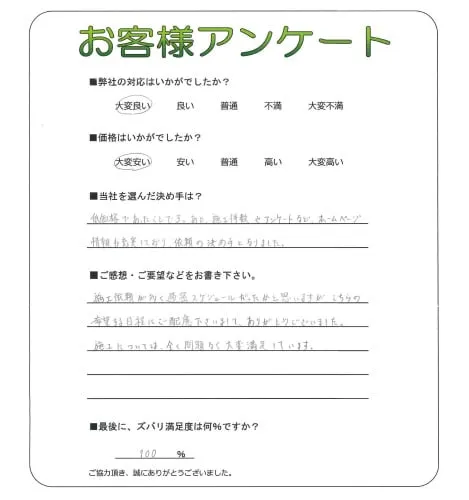 お客様アンケート
■弊社の対応はいかがでしたか？
大変良い 良い 普通 不満 大変不満
■価格はいかがでしたか？
大変安い 安い 普通 高い 大変高い
■当社を選んだ決め手は？
低価格であったことです。あと、施工件数やアンケートなど、ホームページ
情報も充実しており、依頼の決め手となりました。
■ご感想・ご要望などをお書き下さい。
施工依頼が多く過密スケジュールだったかと思いますが こちらの
希望する日程にご配慮下さいまして、ありがとうございました。
施工については、全く問題なく大変満足しています。
■最後に、ズバリ満足度は何％ですか？
100 ％
ご協力頂き、誠にありがとうございました。